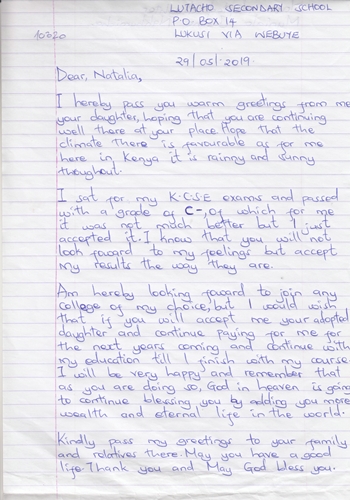 LUTACHO SECONDARY SCHOOL
P.O BOX 14
10320
LUKUSI VIA WEBUYE
29/05/2019.
Dear, Natalia,
I hereby pass you warm greetings from me
your daughter, hoping that you are continuing
well there at your place. Hope that the
climate there is favourable as for me
here in Kenya it is rainny and sunny
throughout.
I sat for my K.C.S.E exams and passed
with a grade of C-, Of which for me
it was not much better but I just
accepted it. I know that you will not
look foward to my feelings but accept
my results the way they are.
Am hereby looking foward to join any
college of my choice, but I would wish
that if you will accept me your adopted
daughter and continue paying for me for
the next years coming and continue with
my education till I finish with my course.
I will be very happy and remember that
as you are doing so, God in heaven is going
to continue blessing you by adding you more
wealth and eternal life in the world.
Kindly pass my greetings to your family
and relatives there. May you have a good
life. Thank you and May God bless you.